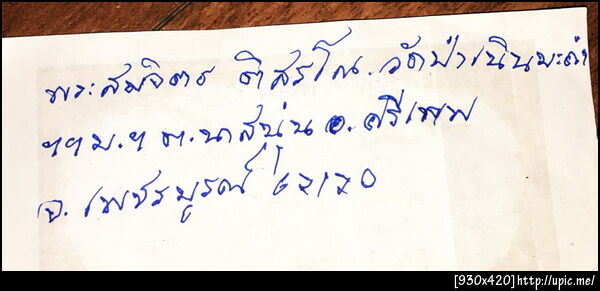 พระสมจิตร ติสรโณ. วัดป่าเนินมะค่า
๑๑ ม.๑ ต.นาสนุ่น อ.ศรีเทพ
จ.เพชรบูรณ์ ๖๗๑๗๐
[930x420]http://upic.me/